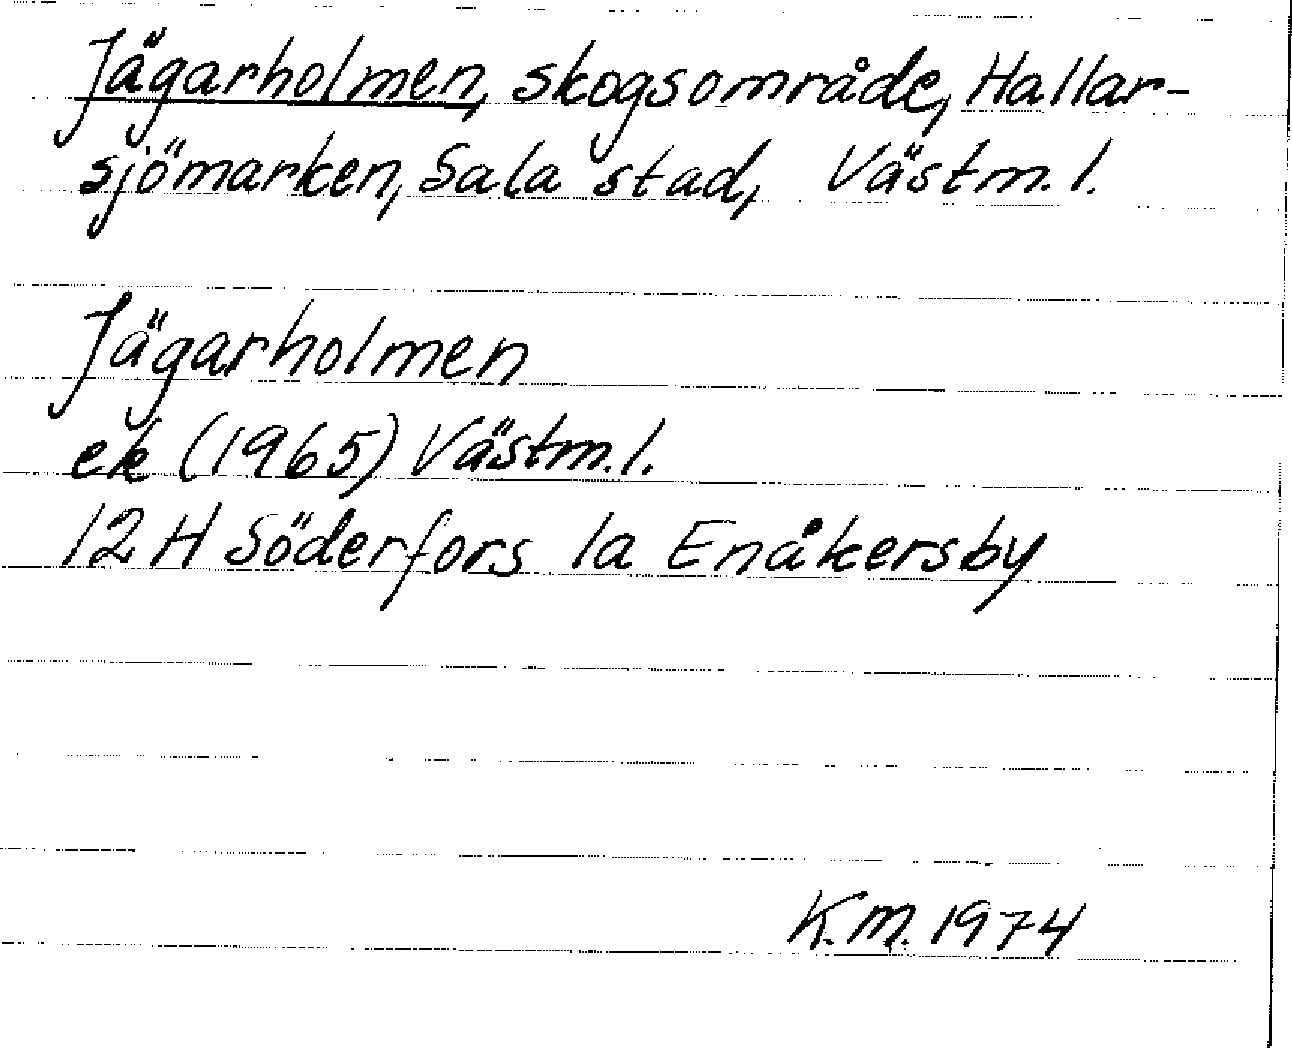 Jägarholmen, skogsområde, Hallar-
sjömarken, Sala stad, Västm. l.
Jägarholmen
ek (1965) Västm. l.
12 H Söderfors 1a Enåkersby
K.M. 1974